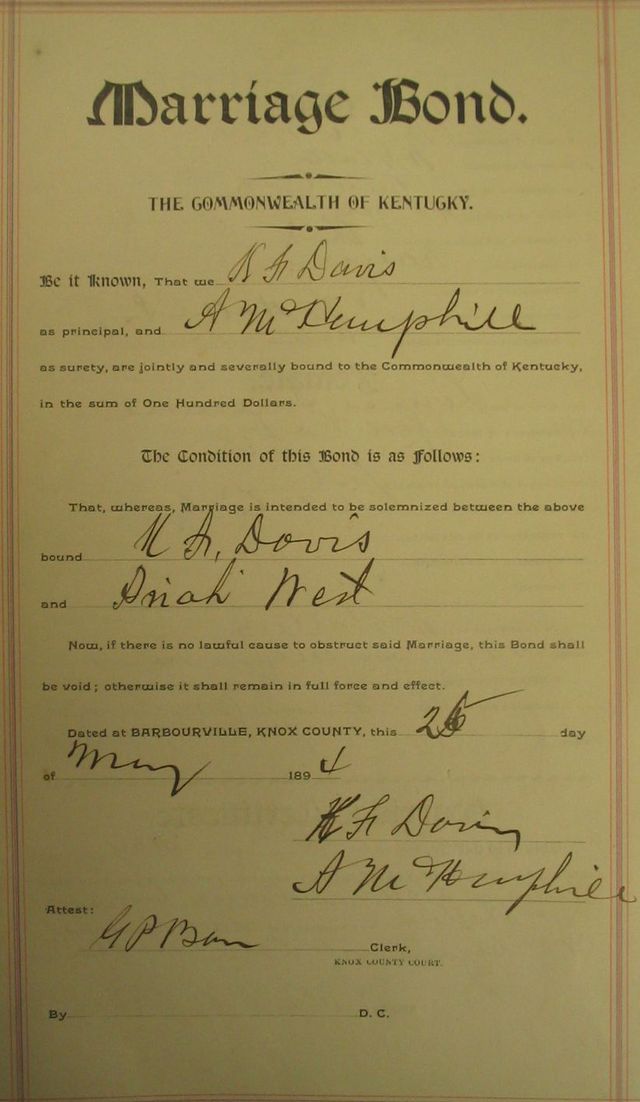 Marriage Bond.
THE COMMONWEALTH OF KENTUCKY.
Be it Known, That we K F Davis
as principal, and A M Hemphill
as surety, are jointly and severally bound to the Commonwealth of Kentucky,
in the sum of One Hundred Dollars.
The Condition of this Bond is as Follows:
That, whereas, Marriage is intended to be solemnized between the above
bound K F, Davis
and West
Now, if there is no lawful cause to obstruct said Marriage, this Bond shall
be void; otherwise it shall remain in full force and effect.
Dated at BARBOURVILLE, KNOX COUNTY, this day
of May 1894
K F Davis
A M Hemphill
Attest:
G P Clerk,
KNOX COUNTY COURT.
By D. C.